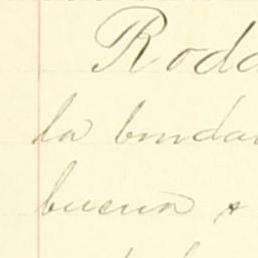 Rodd
la bondad
buena